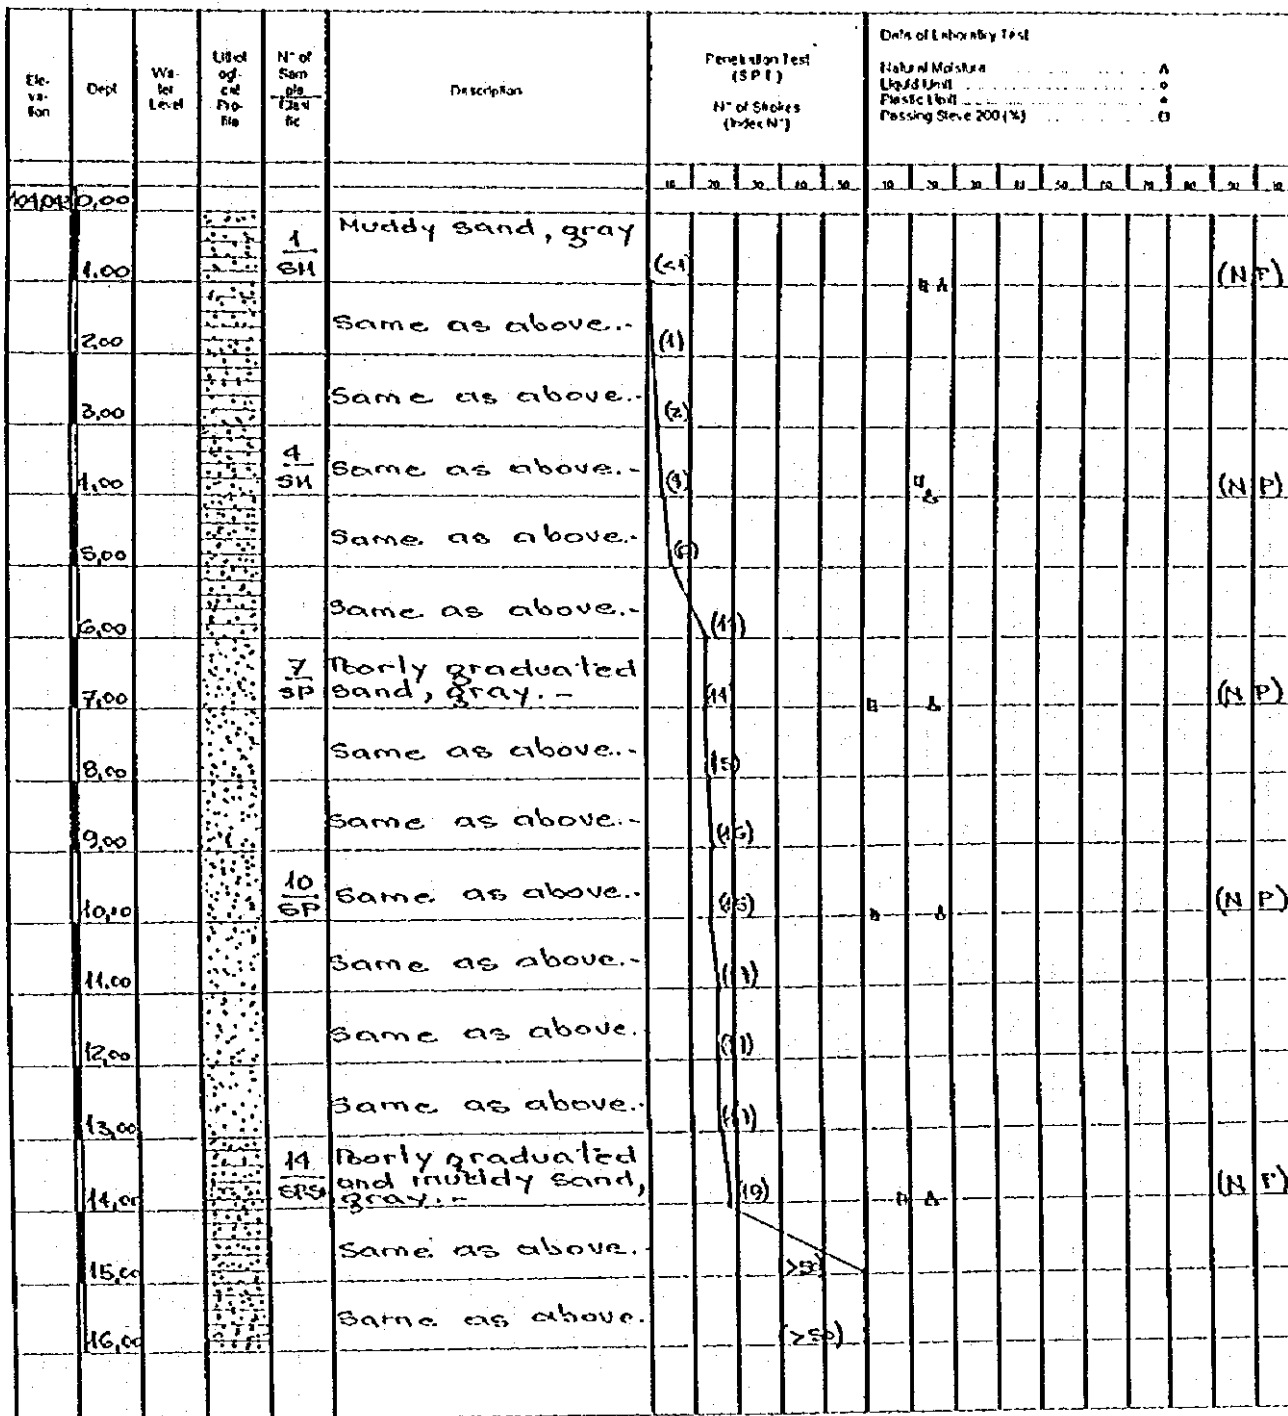 Ele-
va-
tion
Dept
Wa-
ter
Level
Litol
ogi-
cal
Pro-
file
N° of
Sam
ple
Clasi
fic
Description
Penetration Test
(S P T)
N° of Strokes
(Index N°)
Data of Laboratry Test
Natural Moisture
Liquid Limit
Plastic Limit
Passing Sieve 200 (%)
10 20 30 40 50 10 20 30 40 50 60 70 80 90
0,00
1
SM
Muddy sand, gray
1.00
(<1)
(N P)
Same as above.-
2.00
(1)
Same as above.-
3,00
(2)
4
SM
Same as above.-
4,00
(N P)
Same as above.-
5,00
Same as above.-
6,00
7
SP
Poorly graduated
sand, gray.-
7,00
(N P)
Same as above.-
8,00
Same as above.-
9,00
10
SP
Same as above.-
10,00
(N P)
Same as above.-
11.00
Same as above.
12,00
Same as above.
13,00
14
Poorly graduated
and muddy sand,
gray.-
14,00
(19)
(N P)
Same as above.
15,00
(>50)
Same as above.
16,00
(>50)